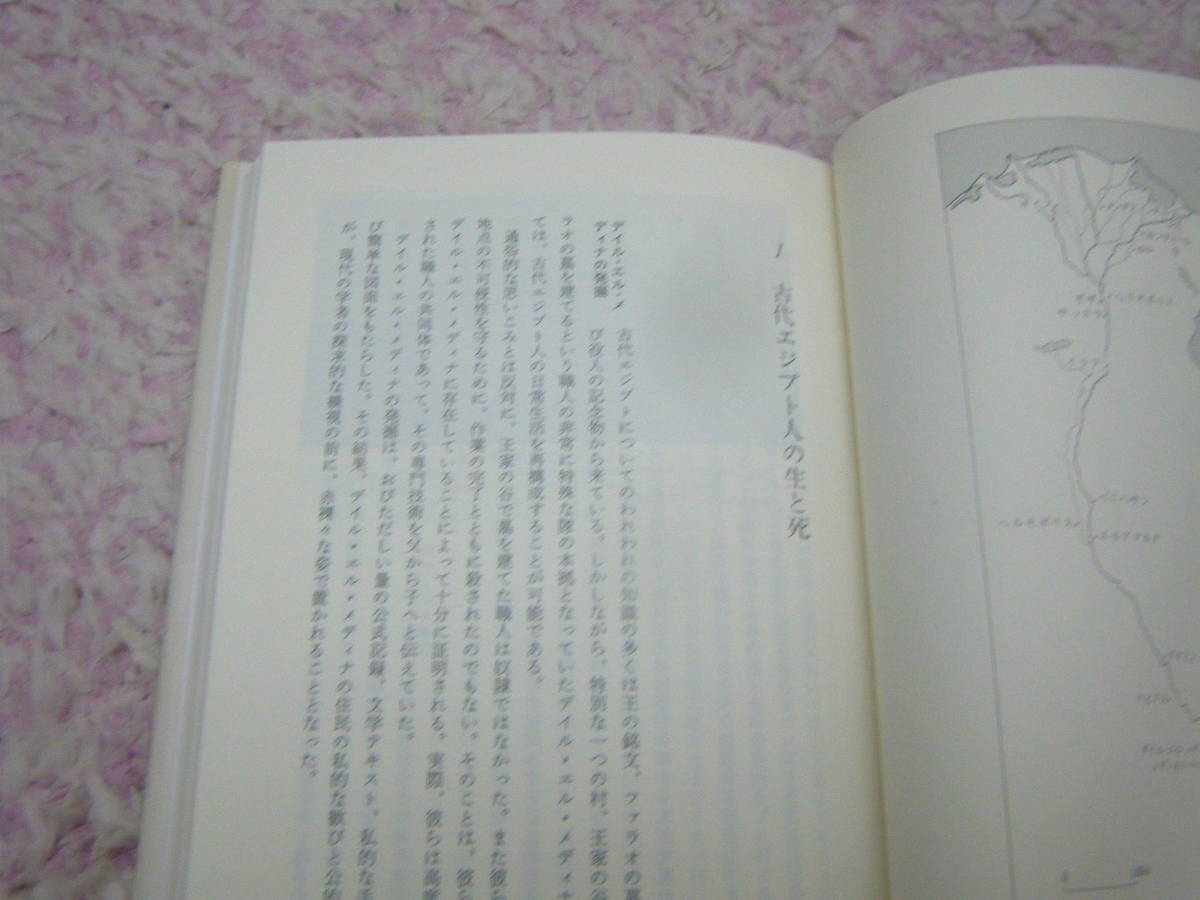 1 古代エジプト人の生と死
デイル・エル・メ
ディナの発掘
古代エジプトについてのわれわれの知識の多くは王の銘文、ファラオの墓
び役人の記念物から来ている。しかしながら、特別な一つの村、王家の谷
ラオの墓を建てるという職人の非常に特殊な隊の本拠となっていたデイル・エル・メディナ
ては、古代エジプト人の日常生活を再構成することが可能である。
通俗的な思いこみとは反対に、王家の谷で墓を建てた職人は奴隷ではなかった。また彼ら
地点の不可侵性を守るために、作業の完了とともに殺されたのでもない。そのことは、彼ら
デイル・エル・メディナに存在していることによって十分に証明される。実際、彼らは高度
された職人の共同体であって、その専門技術を父から子へと伝えていた。
デイル・エル・メディナの発掘は、おびただしい量の公式記録、文学テキスト、私的な手
び簡単な図面をもたらした。その結果、デイル・エル・メディナの住民の私的な歓びと公的
が、現代の学者の探求的な凝視の前に、赤裸々な姿で置かれることとなった。
ギザ
ヘリオポリス
サッカラ
ベニハサン
ヘルモポリス
エルアマルナ
0